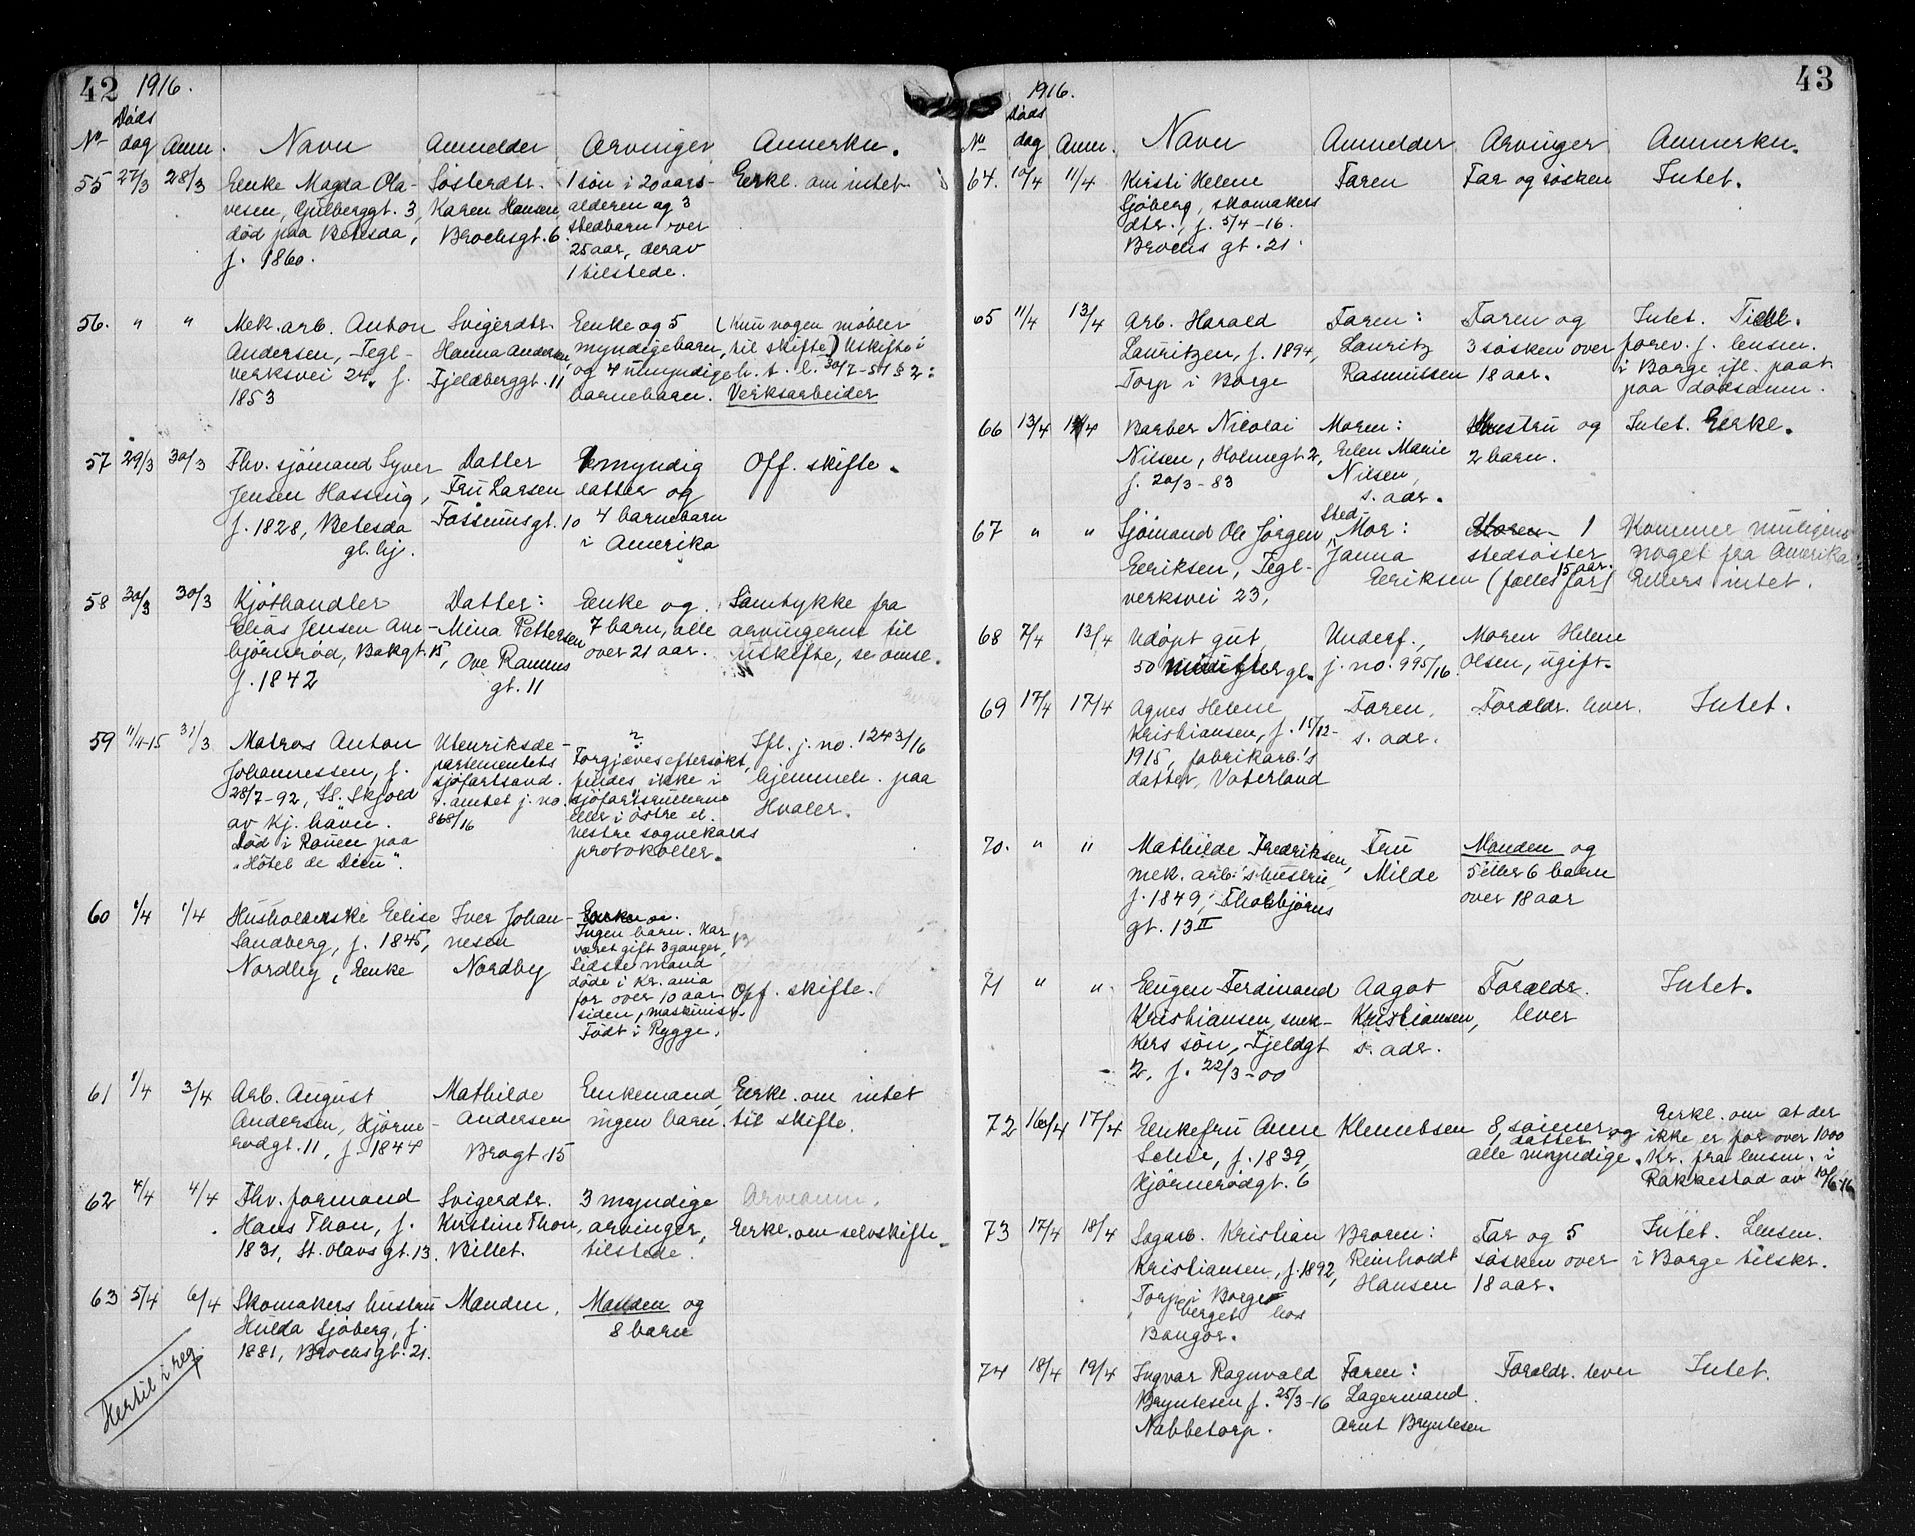 42 1916.
Døds
No dag Anm. Navn Anmelder Arvinger Anmerkn.
55 27/3 28/3 Enke Magda Ola- Søsterdtr. 1 søn i 20 aars- Erkl. om intet
vesen, Gulberggt. 3, Karen Hansen, alderen og 3
død paa Betesda, Brochsgt. 6. stedbarn over
f. 1860. 25 aar, derav
1 tilstede.
56. " " Mek. arb. Anton Svigerdtr. Enke og 5 (Kun nogen møbler
Andersen, Tegl- Hanna Andersen, myndige barn, til skifte) Uskifte i
verksvei 24, f. Fjeldberggt. 11 og 4 umyndige h. t. l. 30/7-51 § 2:
1853 barnebarn. Verksarbeider
57 29/3 30/3 Fhv. sjømand Syver Datter 1 myndig Off. skifte.
Jensen Hassing, Fru Larsen datter og
f. 1828, Betesda Fossumsgt. 10 4 barnebarn
gl. hj. i Amerika
58 30/3 30/3 Kjøthandler Datter: Enke og Samtykke fra
Elias Jensen Aue- Mina Pettersen 7 barn, alle arvingerne til
bjørnrød, Bakgt. 15, Ove Ramms over 21 aar. uskifte, se omsl.
f. 1842 gt. 11
59 11/4-15 31/3 Matros Anton Utenriksde- ? Ifl. j. no. 1243/16
Johannessen, f. partementets Forgjæves eftersøkt, hjemmeh. paa
28/7-92, SS. "Skjold" sjøfartsavd. findes ikke i Hvaler.
av Kj. havn. v. amtet j. no. sjøfartsrullerne
Død i Rouen paa 868/16 eller i østre el.
"Hôtel de Dieu". vestre sognekalds
protokoller.
60 1/4 1/4 Husholderske Elise Iver Johan- Enke
Sandberg, f. 1845, nesen Ingen barn. Har
Nordby, Enke Nordby været gift 3 ganger,
Sidste mand
døde i Kr. ania
for over 10 aar Off. skifte.
siden, maskinist.
Født i Rygge.
61 1/4 3/4 Arb. August Mathilde Enkemand, Erkl. om intet
Andersen, Hjørne- Andersen ingen barn. til skifte.
rødgt. 11, f. 1844 Brogt. 15
62 4/4 4/4 Fhv. formand Svigerdtr. 3 myndige Arveanm.
Hans Thon, f. Kirstine Thon, arvinger, Erkl. om selvskifte.
1831, St. Olavs gt. 13. Billet. tilstede.
63 5/4 6/4 Skomakers hustru Manden, Manden og
Hulda Sjøberg, f. 8 barn
1881, Brochsgt. 21.
Hertil i reg.
43
1916.
Døds
No dag Anm. Navn Anmelder Arvinger Anmerkn.
64. 10/4 11/4 Kirsti Helene Faren Far og søsken Intet.
Sjøberg, skomakers
dtr., f. 5/4-16.
Brochs gt. 21.
65 11/4 13/4 Arb. Harald Faren: Faren og Intet.
Lauritzen, f. 1894, Lauritz 3 søsken over forev. f. lensm.
Torp i Borge Rasmussen 18 aar. i Borge ifl. paat.
paa dødsanm.
66 13/4 Barber Nicolai Moren: Hustru og Intet. Erkl.
Nilsen, Holmegt. 2, Elen Marie 2 barn.
f. 20/3-83 Nilsen,
s. adr.
67 " " Sjømand Ole Jørgen Sted-Mor: Moren 1 Kommer muligens
Eriksen, Tegl- Janna stedsøster 15 aar. noget fra Amerika
verksvei 23, Eriksen (fælles far) Ellers intet.
68 7/4 13/4 Udøpt gut, Underf., Moren Helene
50 minutter gl. j. no. 995/16. Olsen, ugift.
69 17/4 17/4 Agnes Helene Faren, Forældr. lever. Intet.
Kristiansen, f. 15/12- s. adr.
1915, fabrikarb.'s
datter, Vaterland
70. " " Mathilde Fredriksen, Fru Manden og
mek. arb.'s hustru, Milde 5 eller 6 barn
f. 1849, Thorbjørns over 18 aar
gt. 13 II
71 " " Eugen Ferdinand Aagot Forældr. Intet.
Kristiansen, snek- Kristiansen, lever
kers søn, Fjeldgt s. adr.
2, f. 22/3-00
72 16/4 17/4 Enkefru Anne Klemetsen 8 sønner og Erkl. om at der
Lchie, f. 1839, datter ikke er for over 1000
Hjørnerødgt. 6 alle myndige. Kr. fra lensm. i
Rakkestad av 10/6-16
73 17/4 18/4 Sagarb. Kristian Broren: Far og 5 Intet. Lensm.
Kristiansen, f. 1892, Reinholdt søsken over i Borge tilskr.
Torp i Borge Hansen 18 aar.
berget hos
Bangor.
74 18/4 19/4 Ingvar Ragnvald Faren: Forældr. lever Intet.
Bryntesen f. 25/3-16 Lagermand
Nabbetorp. Arnt Bryntesen